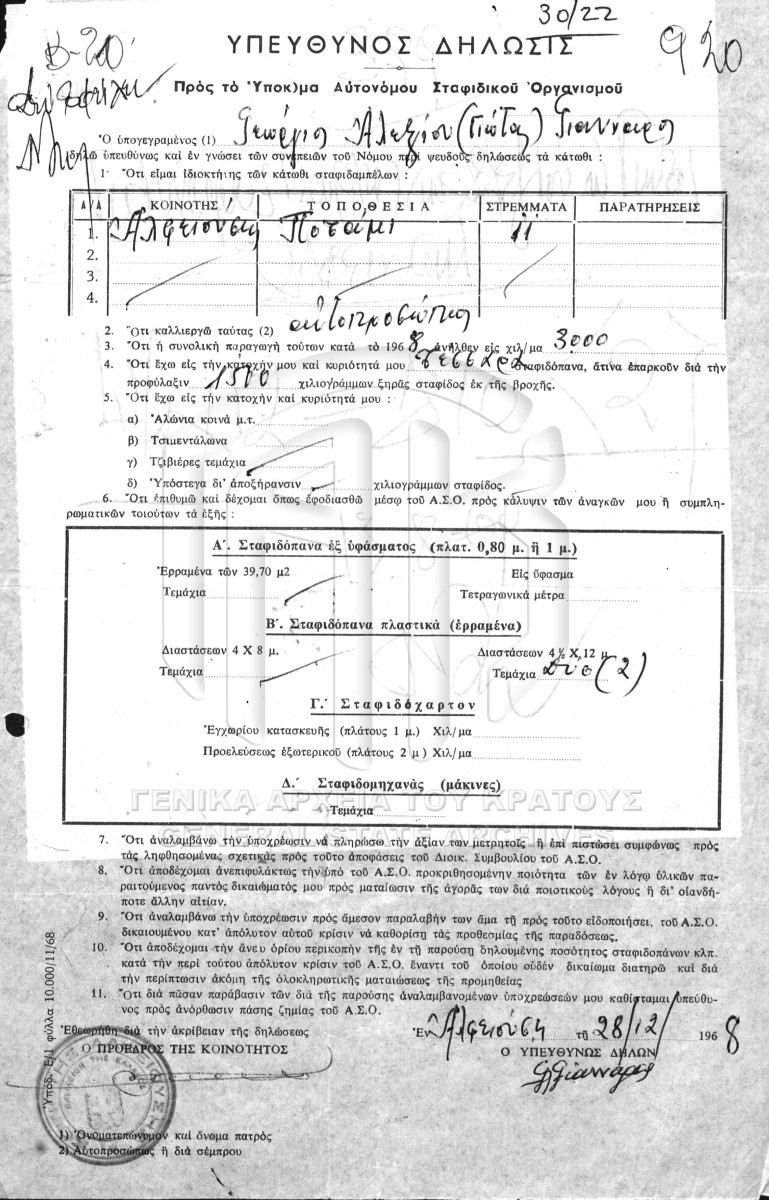 30/22
Β-20
920
ΥΠΕΥΘΥΝΟΣ ΔΗΛΩΣΙΣ
Πρὸς τὸ Ὑποκ)μα Αὐτονόμου Σταφιδικοῦ Ὀργανισμοῦ
Ὁ ὑπογεγραμένος (1) Γεώργιος Αλεξίου (Γιώτας) Γιανναρος
δηλῶ ὑπευθύνως καὶ ἐν γνώσει τῶν συνεπειῶν τοῦ Νόμου περὶ ψευδοῦς δηλώσεως τὰ κάτωθι :
1· Ὅτι εἶμαι ἰδιοκτήτης τῶν κάτωθι σταφιδαμπέλων :
Α/Α ΚΟΙΝΟΤΗΣ ΤΟΠΟΘΕΣΙΑ ΣΤΡΕΜΜΑΤΑ ΠΑΡΑΤΗΡΗΣΕΙΣ
1. Αλφειούσης Ποτάμι 11
2.
3.
4.
2. Ὅτι καλλιεργῶ ταύτας (2) αυτοπροσώπως
3. Ὅτι ἡ συνολικὴ παραγωγὴ τούτων κατὰ τὸ 1968 ἀνῆλθεν εἰς χιλ/μα 3000
4. Ὅτι ἔχω εἰς τὴν κατοχήν μου καὶ κυριότητά μου τέσσαρα σταφιδόπανα, ἅτινα ἐπαρκοῦν διὰ τὴν
προφύλαξιν 1500 χιλιογράμμων ξηρᾶς σταφίδος ἐκ τῆς βροχῆς.
5. Ὅτι ἔχω εἰς τὴν κατοχὴν καὶ κυριότητά μου :
α) Ἁλώνια κοινὰ μ.τ.
β) Τσιμεντάλωνα
γ) Τζιβιέρες τεμάχια
δ) Ὑπόστεγα δι' ἀποξήρανσιν χιλιογράμμων σταφίδος.
6. Ὅτι ἐπιθυμῶ καὶ δέχομαι ὅπως ἐφοδιασθῶ μέσῳ τοῦ Α.Σ.Ο. πρὸς κάλυψιν τῶν ἀναγκῶν μου ἢ συμπλη-
ρωματικῶν τοιούτων τὰ ἑξῆς :
Α΄. Σταφιδόπανα ἐξ ὑφάσματος (πλατ. 0,80 μ. ἢ 1 μ.)
Ἐρραμένα τῶν 39,70 μ2 Εἰς ὕφασμα
Τεμάχια Τετραγωνικὰ μέτρα
Β΄. Σταφιδόπανα πλαστικὰ (ἐρραμένα)
Διαστάσεων 4 Χ 8 μ. Διαστάσεων 4½ Χ 12 μ.
Τεμάχια Τεμάχια Δύο (2)
Γ.΄ Σταφιδόχαρτον
Ἐγχωρίου κατασκευῆς (πλάτους 1 μ.) Χιλ/μα
Προελεύσεως ἐξωτερικοῦ (πλάτους 2 μ) Χιλ/μα
Δ.΄ Σταφιδομηχανὰς (μάκινες)
Τεμάχια
ΓΕΝΙΚΑ ΑΡΧΕΙΑ ΤΟΥ ΚΡΑΤΟΥΣ
GENERAL STATE ARCHIVES
7. Ὅτι ἀναλαμβάνω τὴν ὑποχρέωσιν νὰ πληρώσω τὴν ἀξίαν των μετρητοῖς ἢ ἐπὶ πιστώσει συμφώνως πρὸς
τὰς ληφθησομένας σχετικὰς πρὸς τοῦτο ἀποφάσεις τοῦ Διοικ. Συμβουλίου τοῦ Α.Σ.Ο.
8. Ὅτι ἀποδέχομαι ἀνεπιφυλάκτως τὴν ὑπὸ τοῦ Α.Σ.Ο. προκριθησομένην ποιότητα τῶν ἐν λόγῳ ὑλικῶν πα-
ραιτούμενος παντὸς δικαιώματός μου πρὸς ματαίωσιν τῆς ἀγορᾶς των διὰ ποιοτικοὺς λόγους ἢ δι' οἱανδή-
ποτε ἄλλην αἰτίαν.
9. Ὅτι ἀναλαμβάνω τὴν ὑποχρέωσιν πρὸς ἄμεσον παραλαβήν των ἅμα τῇ πρὸς τοῦτο εἰδοποιήσει, τοῦ Α.Σ.Ο.
δικαιουμένου κατ' ἀπόλυτον αὐτοῦ κρίσιν νὰ καθορίσῃ τὰς προθεσμίας τῆς παραδόσεως.
10. Ὅτι ἀποδέχομαι τὴν ἄνευ ὁρίου περικοπὴν τῆς ἐν τῇ παρούσῃ δηλουμένης ποσότητος σταφιδοπάνων κλπ.
κατὰ τὴν περὶ τούτου ἀπόλυτον κρίσιν τοῦ Α.Σ.Ο. ἔναντι τοῦ ὁποίου οὐδὲν δικαίωμα διατηρῶ καὶ διὰ
τὴν περίπτωσιν ἀκόμη τῆς ὁλοκληρωτικῆς ματαιώσεως τῆς προμηθείας
11. Ὅτι διὰ πᾶσαν παράβασιν τῶν διὰ τῆς παρούσης ἀναλαμβανομένων ὑποχρεώσεών μου καθίσταμαι ὑπεύθυ-
νος πρὸς ἀνόρθωσιν πάσης ζημίας τοῦ Α.Σ.Ο.
Ἐθεωρήθη διὰ τὴν ἀκρίβειαν τῆς δηλώσεως
Ἐν Αλφειούση τῇ 28/12/ 1968
Ο ΠΡΟΕΔΡΟΣ ΤΗΣ ΚΟΙΝΟΤΗΤΟΣ
Ο ΥΠΕΥΘΥΝΩΣ ΔΗΛΩΝ
Γ Γιανναρος
1) Ὀνοματεπώνυμον καὶ ὄνομα πατρὸς
2) Αὐτοπροσώπως ἢ διὰ σέμπρου
Ὑποδ. Ε/1 φύλλα 10.000/11/68